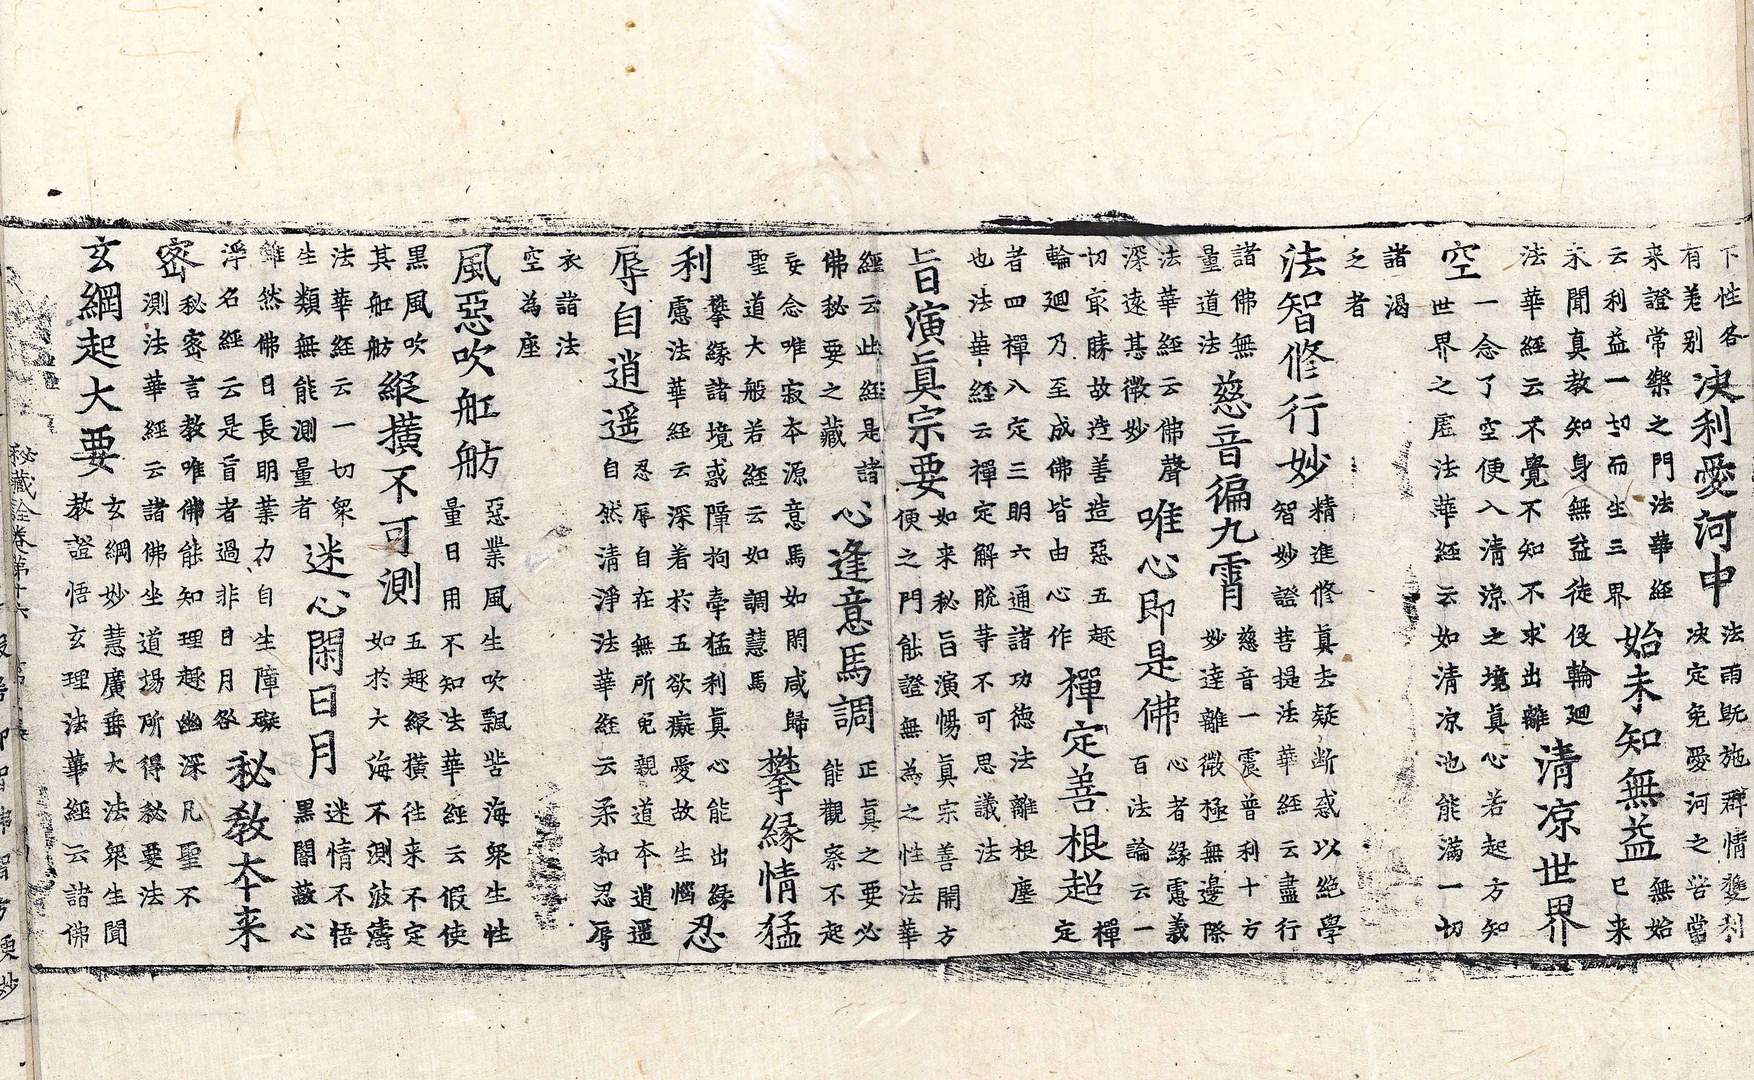 下性各
有差别
决利愛河中
法雨既施群情變利
决定免愛河之苦當
来證常樂之門法華經
云利益一切而生三界
始未知無益
無始
已来
永聞真教知身無益徒伇輪廻
法華經云不覺不知不求出離
清凉世界
空
一念了空便入清凉之境真心若起方知
世界之虛法華經云如清凉池能滿一切
諸渴
乏者
法智修行妙
精進修真去疑断惑以絶學
智妙證菩提法華經云盡行
諸佛無
量道法
慈音徧九霄
慈音一震普利十方
妙達離微極無邊際
法華經云佛聲
深遠甚微妙
唯心即是佛
心者緣慮義
百法論云一
切㝡勝故造善造惡五趣
輪廻乃至成佛皆由心作
禪定善根超
禪
定
者四禪八定三明六通諸功德法離根塵
也法華經云禪定解脫等不可思議法
旨演真宗要
如来秘旨演暢真宗善開方
便之門能證無為之性法華
經云此經是諸
佛秘要之藏
心逢意馬調
正真之要必
能觀察不起
妄念唯寂本源意馬如閑咸歸
聖道大般若經云如調慧馬
攀緣情猛
利
攀緣諸境惑障拘牽猛利真心能出緣
慮法華經云深着於五欲癡愛故生惱
忍
辱自逍遥
忍辱自在無所 親道本逍遥
自然清淨法華經云柔和忍辱
衣諸法
空為座
風惡吹舡舫
惡業風生吹飄苦海衆生性
量日用不知法華經云假使
黑風吹
其舡舫
縱撗不可測
五趣縱橫往来不定
如於大海不測波濤
法華經云一切衆
生類無能測量者
迷心閑日月
迷情不悟
黑闇蔽心
雖然佛日長明業力自生障礙
淨名經云是盲者過非日月咎
秘教本来
密
秘密言教唯佛能知理趣幽深凡聖不
測法華經云諸佛坐道場所得秘要法
玄綱起大要
玄綱妙慧廣垂大法衆生聞
教證悟玄理法華經云諸佛
秘藏詮卷第十六